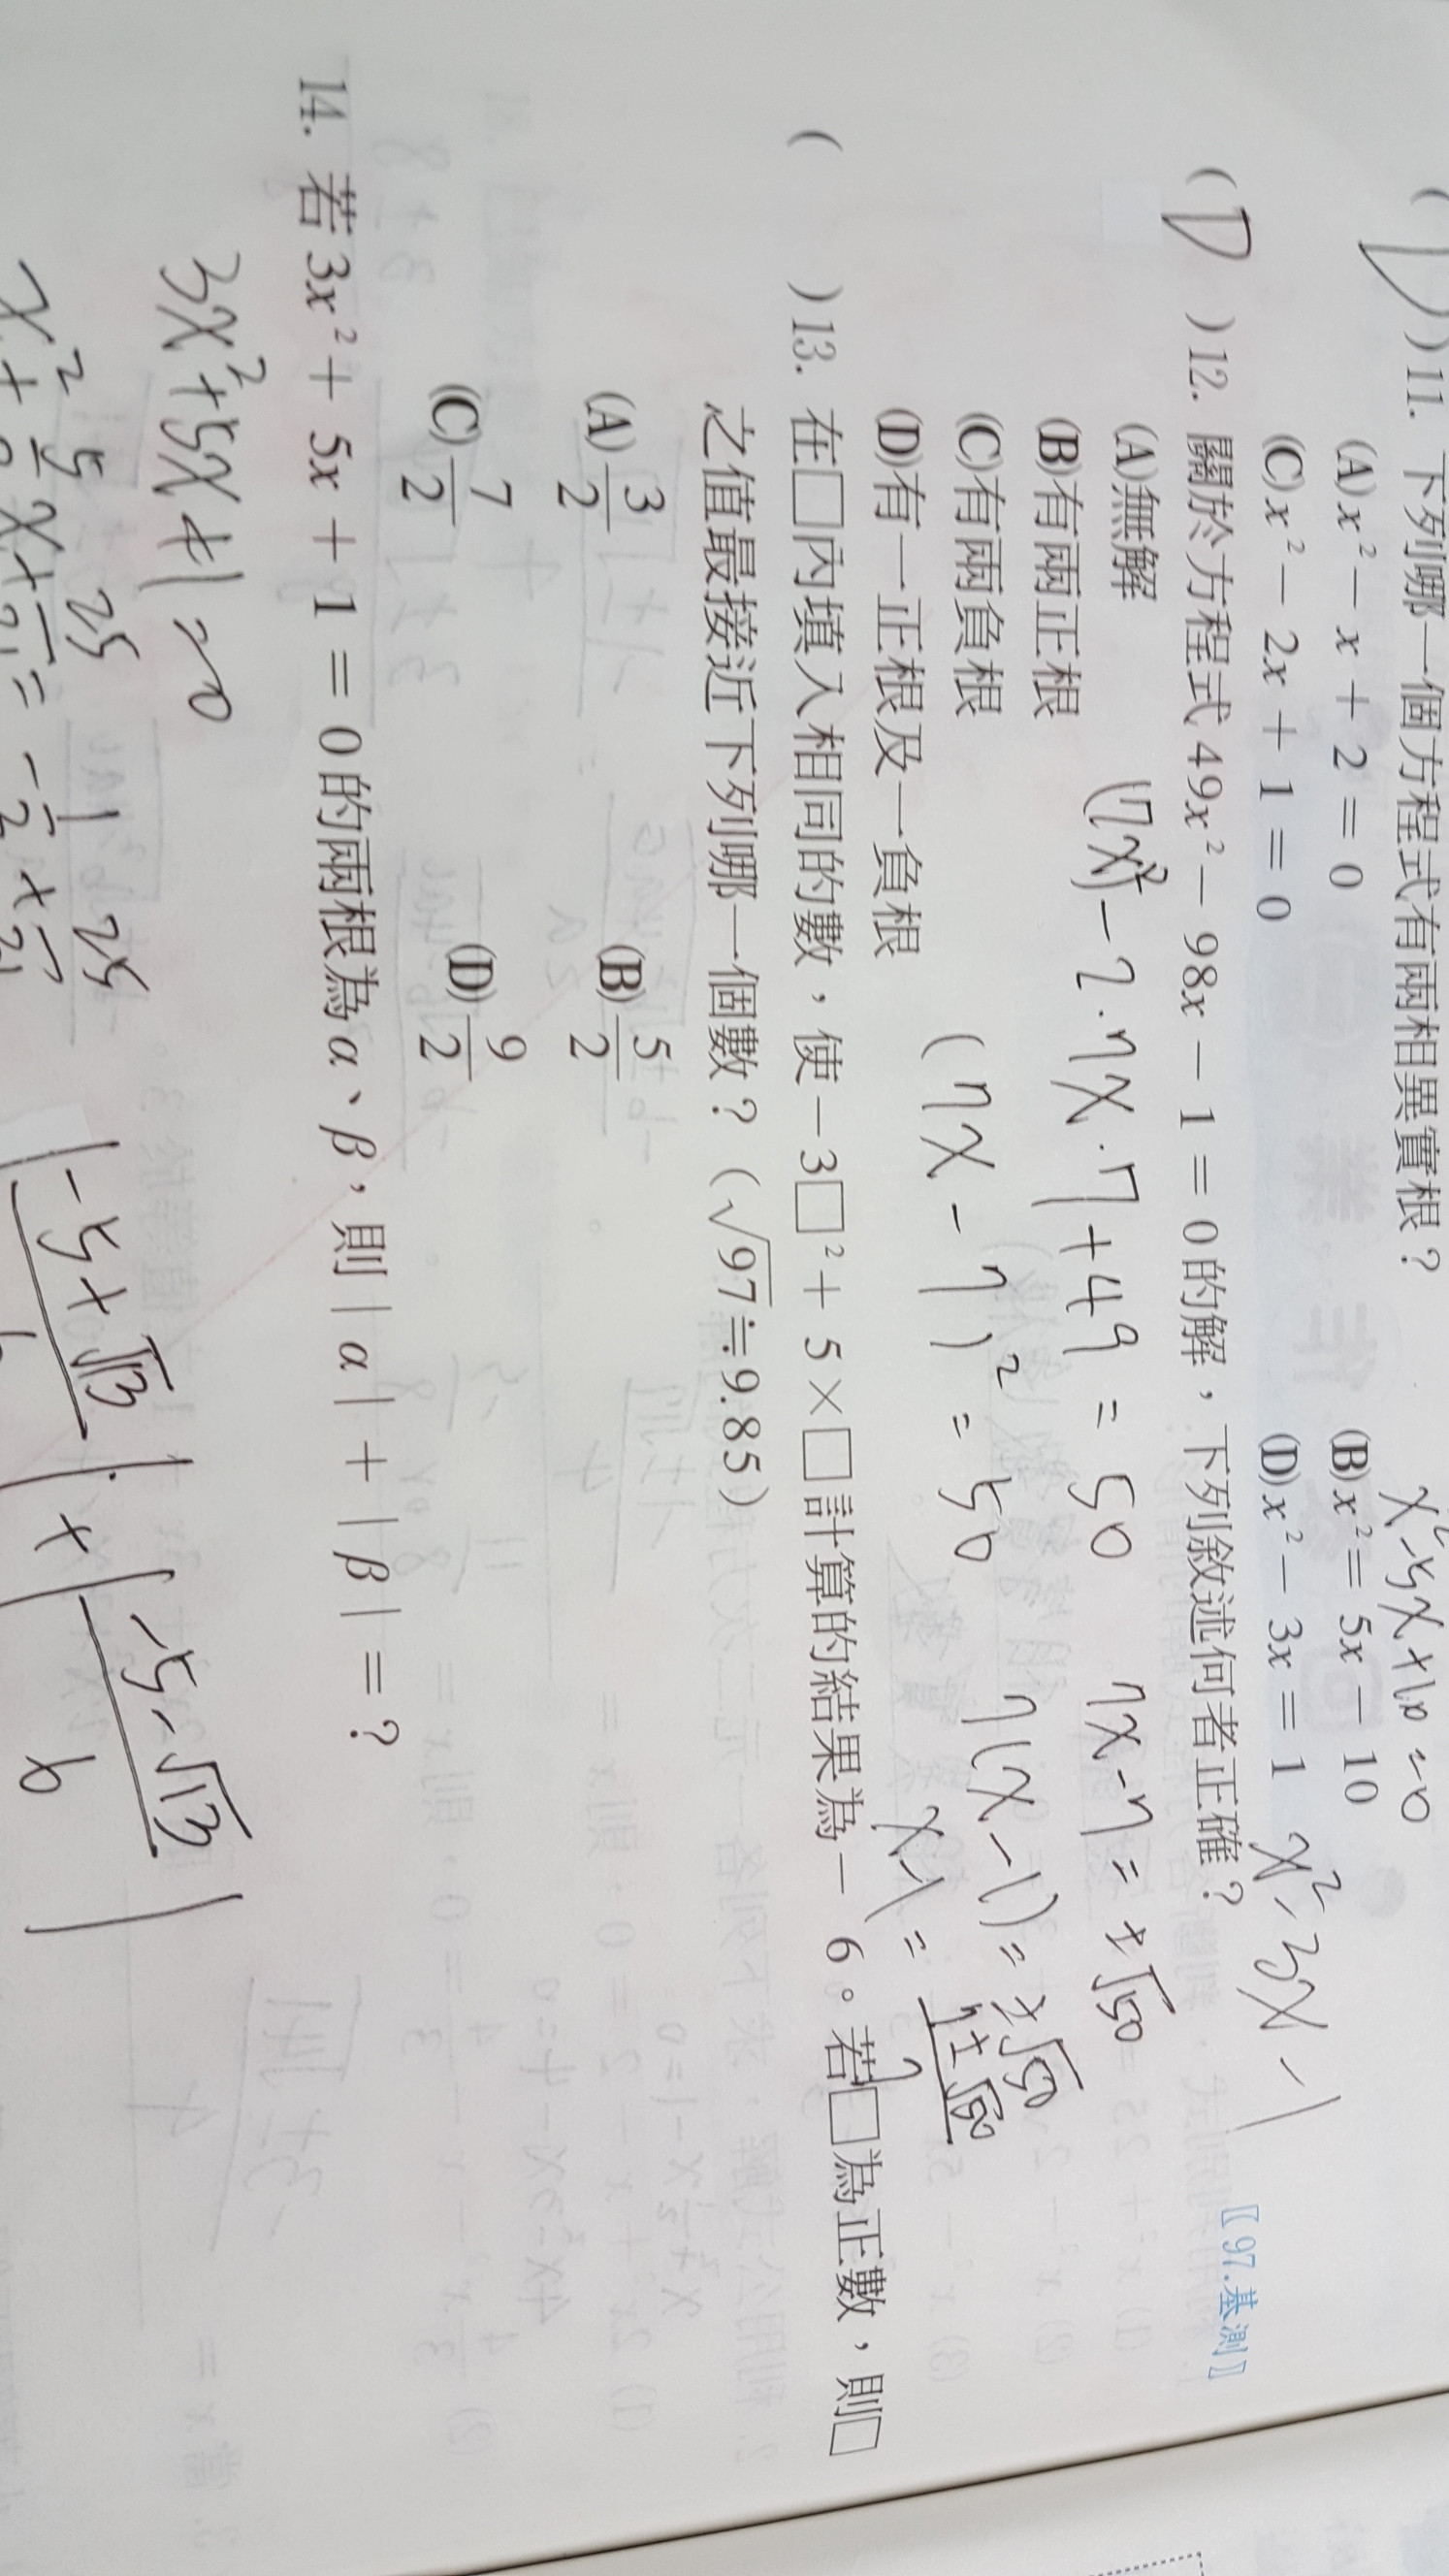 ( D ) 11. 下列哪一個方程式有兩相異實根？
x²-5x+10=0
(A) x² － x ＋ 2 ＝ 0 (B) x² ＝ 5x － 10
(C) x² － 2x ＋ 1 ＝ 0 (D) x² － 3x ＝ 1 x²-3x-1
( D ) 12. 關於方程式 49x² － 98x － 1 ＝ 0 的解，下列敘述何者正確？ 〖97.基測〗
(A)無解
(7x)²-2·7x·7+49=50 7x-7=±√50
(B)有兩正根
(C)有兩負根
(7x-7)²=50 7(x-1)=±√50
(D)有一正根及一負根
( ) 13. 在□內填入相同的數，使－3□²＋ 5×□計算的結果為－ 6。若□為正數，則□
之值最接近下列哪一個數？（√97≒9.85）
(A) 3/2 (B) 5/2
(C) 7/2 (D) 9/2
14. 若 3x²＋ 5x ＋ 1 ＝ 0 的兩根為α、β，則｜α｜＋｜β｜＝？
3x²+5x+1=0